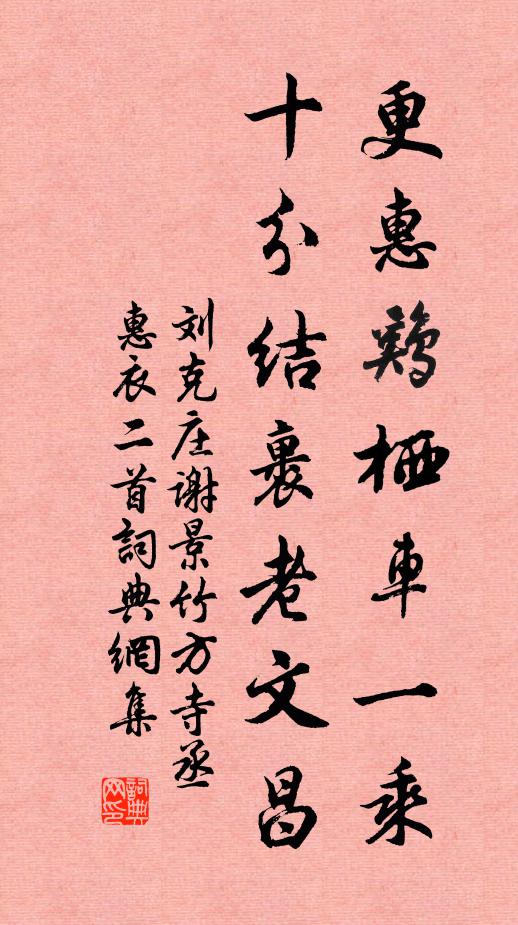 更惠鷄栖車一乘
十分結裹老文昌
刘克庄谢景竹方寺丞
惠衣二首詞典網集
詞典网印